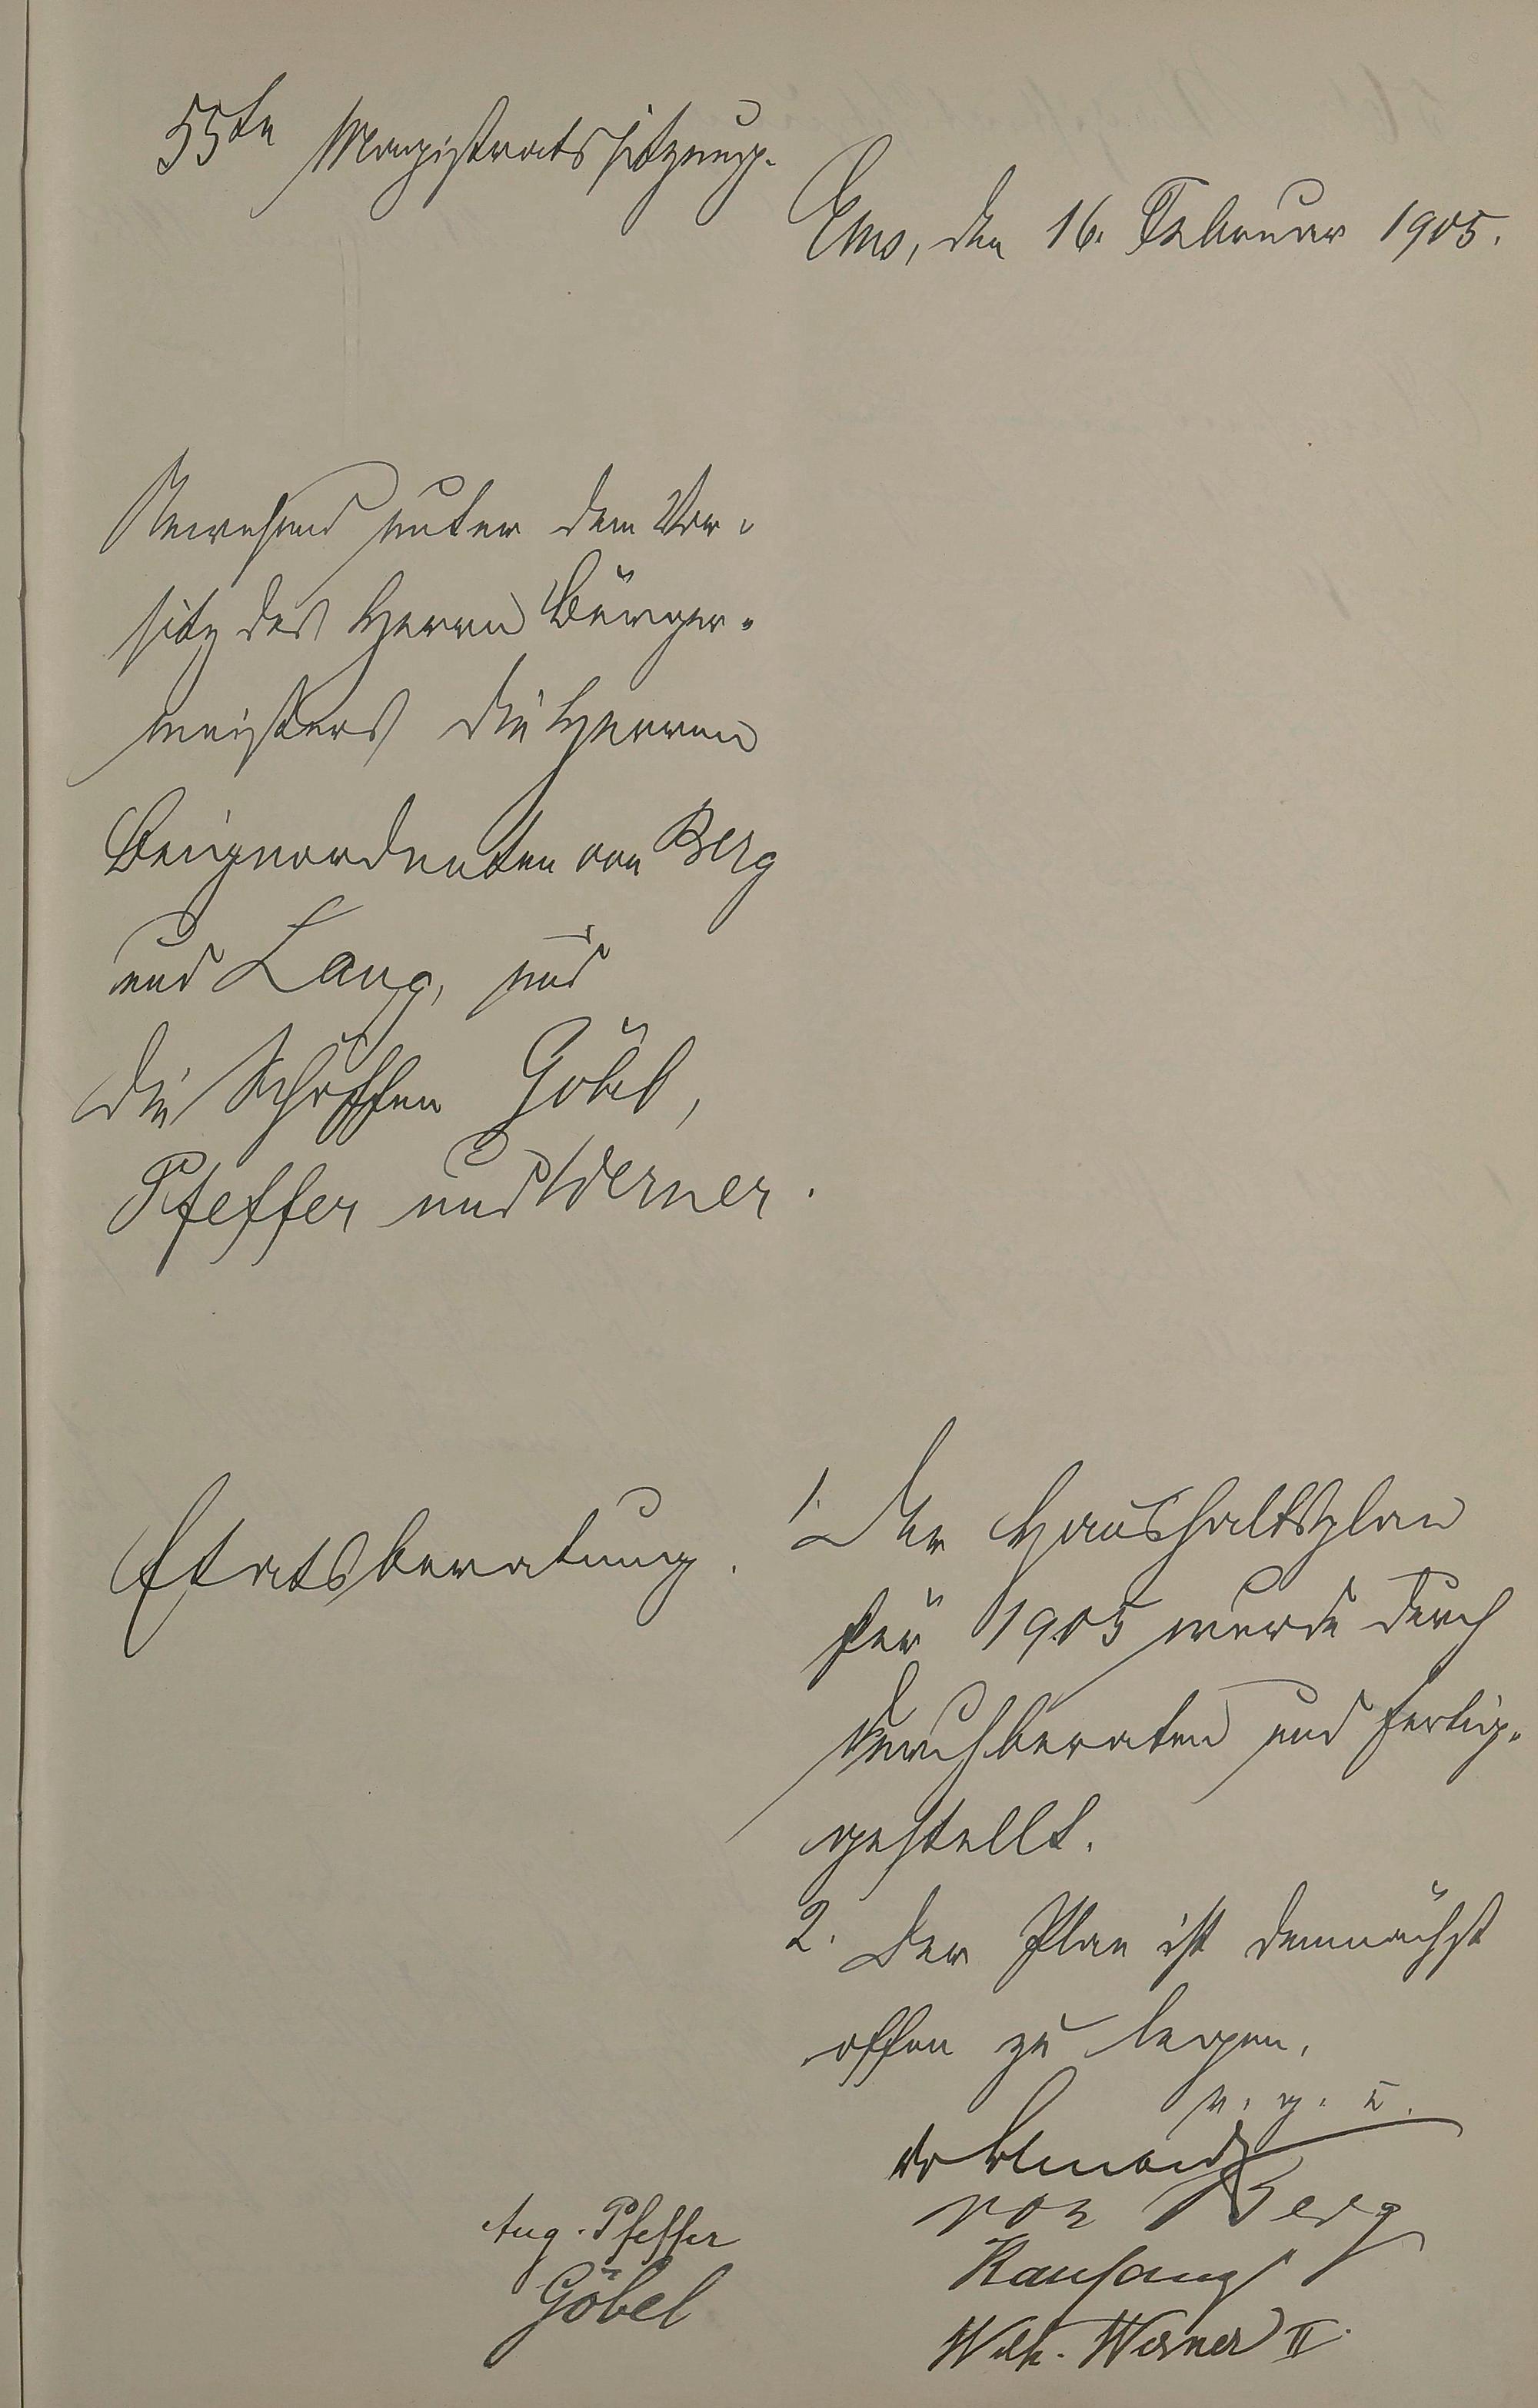 55te Magistratssitzung.
Ems, den 16. Februar 1905.
Anwesend unter dem Vor-
sitz des Herrn Bürger-
meisters die Herren
Beigeordneten von Berg
und Lang, und
die Schöffen Göbel,
Pfeffer und Werner.
Etatsberatung.
1. Der Haushaltsplan
für 1905 wurde durch
durchberaten und fertig-
gestellt.
2. Der Plan ist demnächst
offen zu legen.
v. g. u.
von Berg
Aug. Pfeffer
Göbel
Wilh. Werner II.